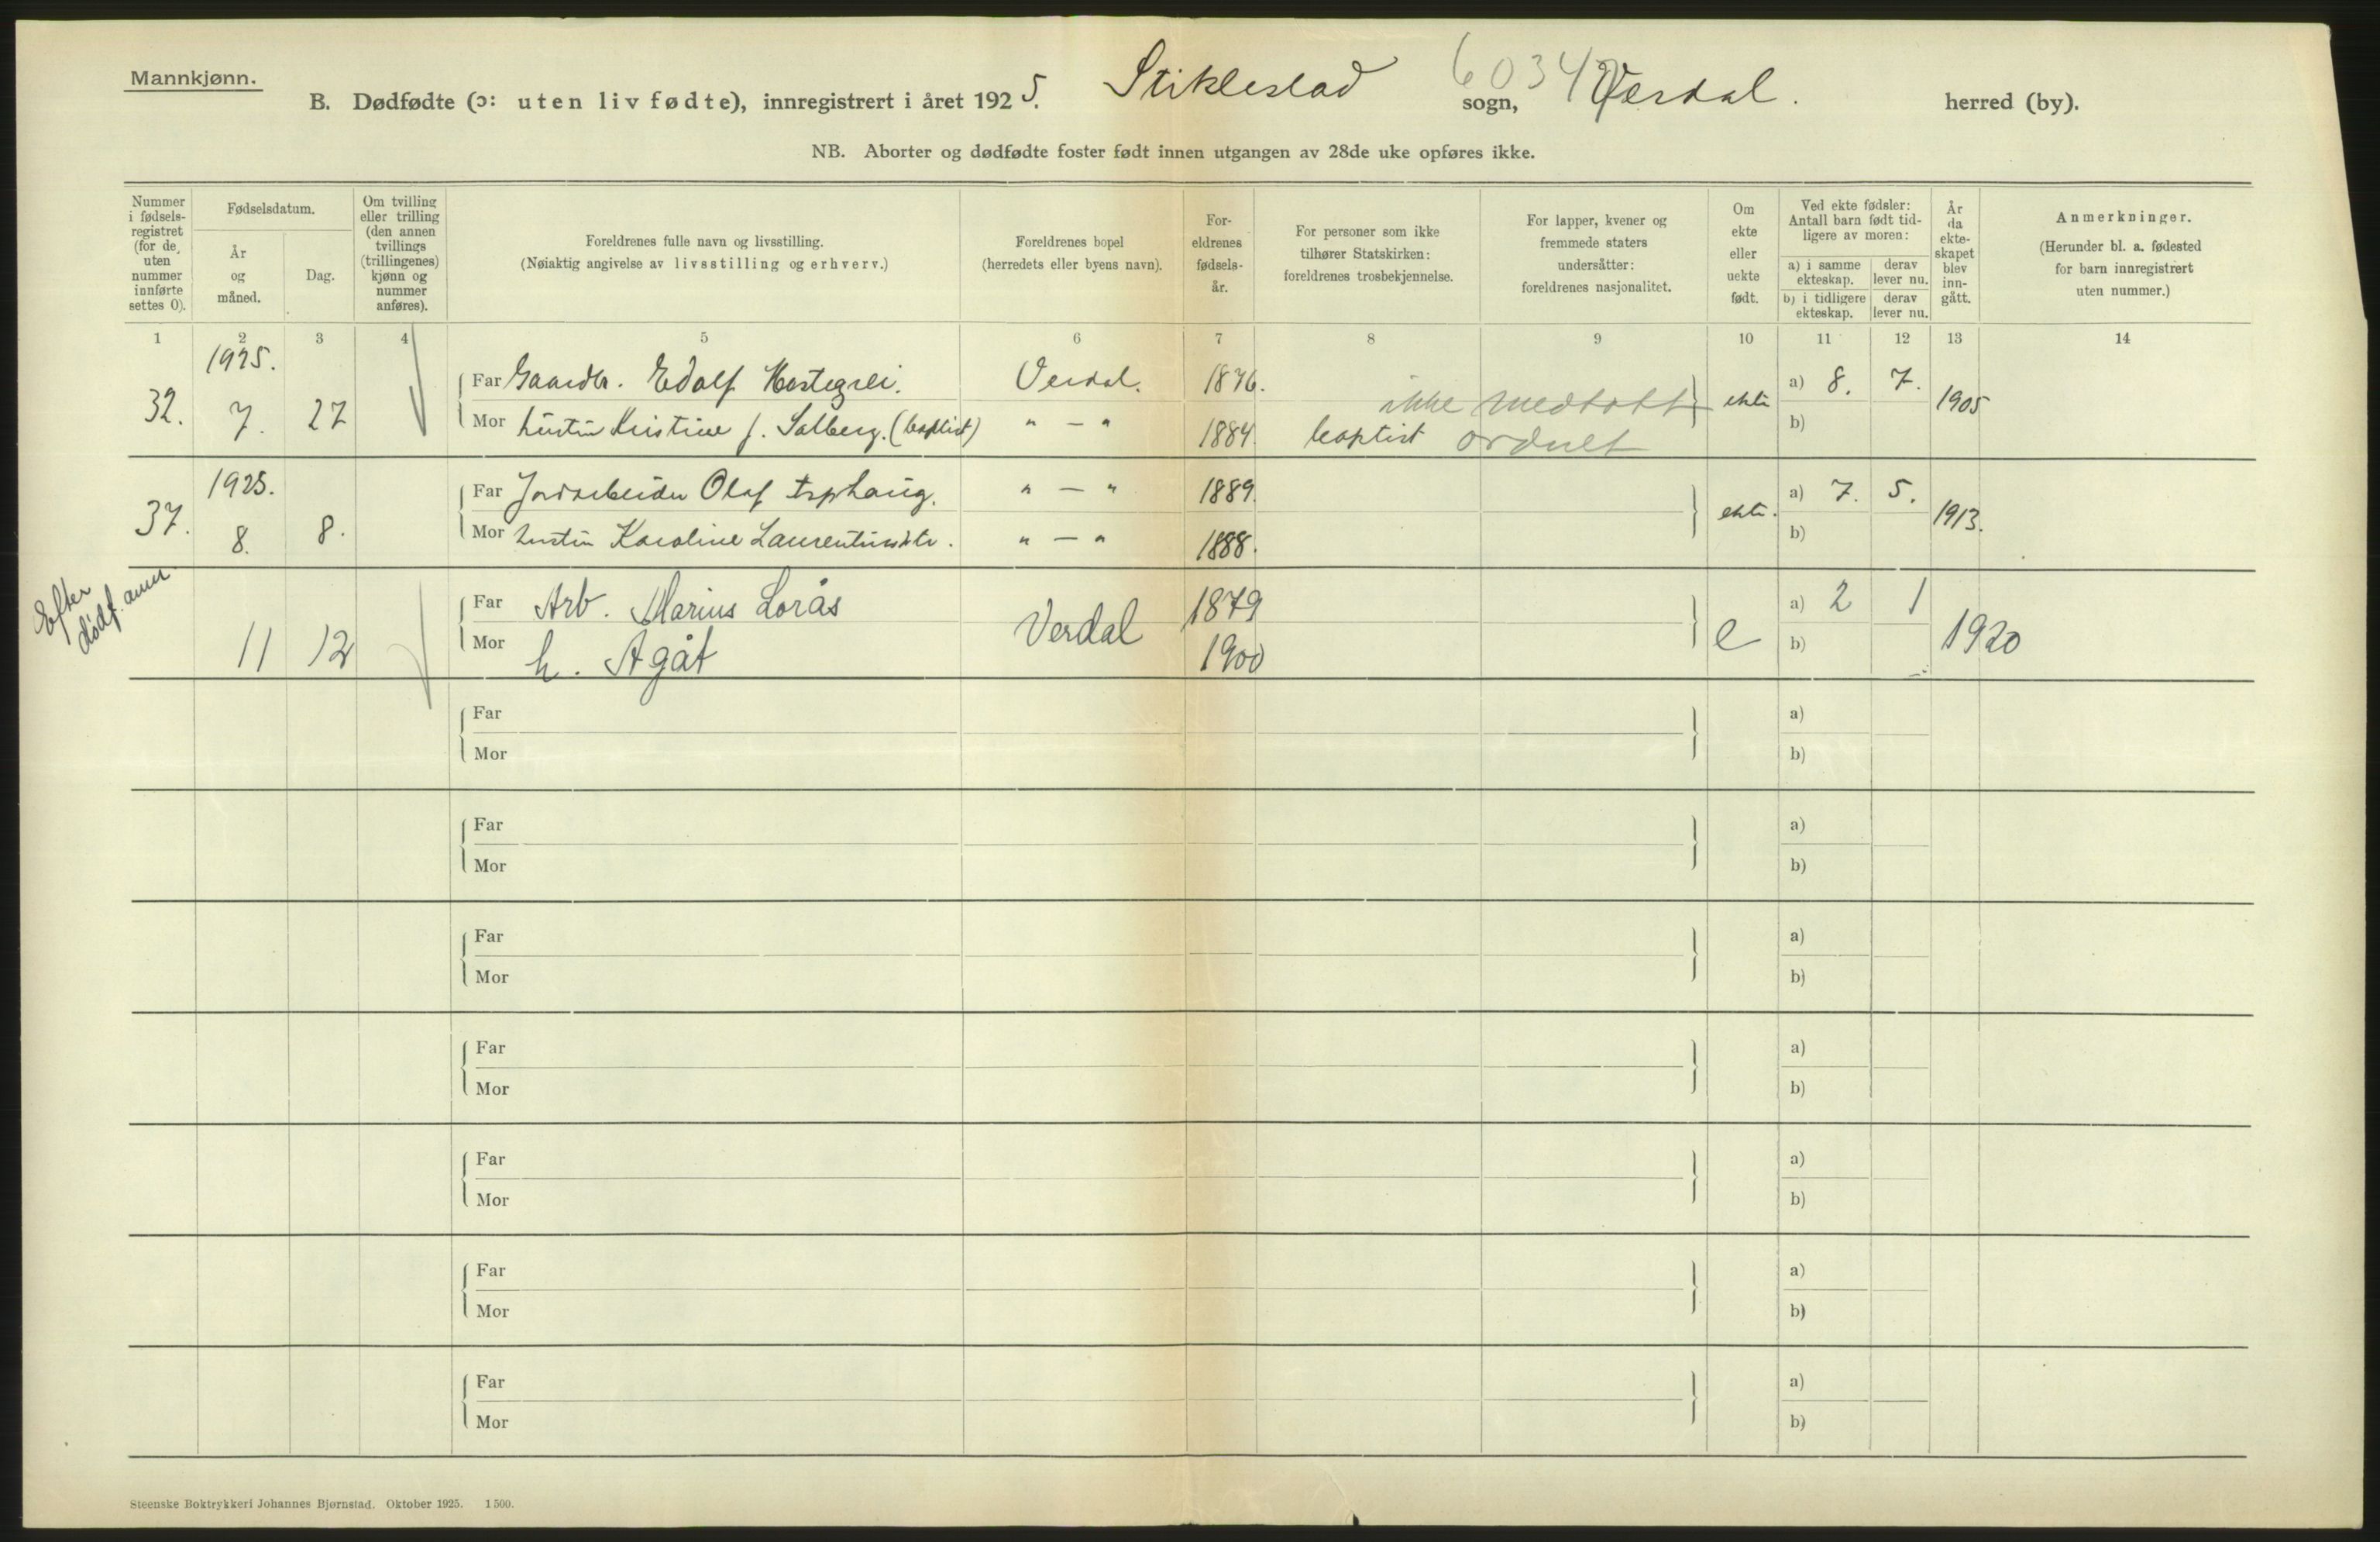 Mannkjønn.
B. Dødfødte (ɔ: uten liv fødte), innregistrert i året 1925. Stiklestad sogn, 6034 Verdal. herred (by).
NB. Aborter og dødfødte foster født innen utgangen av 28de uke opføres ikke.
Nummer i fødsels-registret (for de uten nummer innførte settes 0).
Fødselsdatum.
År og måned.
Dag.
Om tvilling eller trilling (den annen tvillings (trillingenes) kjønn og nummer anføres).
Foreldrenes fulle navn og livsstilling.
(Nøiaktig angivelse av livsstilling og erhverv.)
Foreldrenes bopel
(herredets eller byens navn).
For-eldrenes fødsels-år.
For personer som ikke tilhører Statskirken: foreldrenes trosbekjennelse.
For lapper, kvener og fremmede staters undersåtter: foreldrenes nasjonalitet.
Om ekte eller uekte født.
Ved ekte fødsler: Antall barn født tid-ligere av moren:
a) i samme ekteskap.
derav lever nu.
b) i tidligere ekteskap.
derav lever nu.
År da ekte-skapet blev inn-gått.
Anmerkninger.
(Herunder bl. a. fødested for barn innregistrert uten nummer.)
1 2 3 4 5 6 7 8 9 10 11 12 13 14
1925.
32. 7. 27
Far Gaardbr. Edolf Verdal. 1876. ikke medtatt ekte a) 8. 7. 1905
Mor hustru Kristine f. Salberg. (baptist) " — " 1884. baptist ordnet b)
1925.
37. 8. 8.
Far Jordarbeider Olaf " — " 1889. ekte. a) 7. 5. 1913.
Mor hustru Karoline Laurentiusdtr. " — " 1888. b)
Efter dødf. anm
11 12
Far Arb. Marius Lorås Verdal 1879 e a) 2 1 1920
Mor h. Agåt 1900 b)
Far a)
Mor b)
Far a)
Mor b)
Far a)
Mor b)
Far a)
Mor b)
Far a)
Mor b)
Far a)
Mor b)
Far a)
Mor b)
Steenske Boktrykkeri Johannes Bjørnstad. Oktober 1925. 1500.